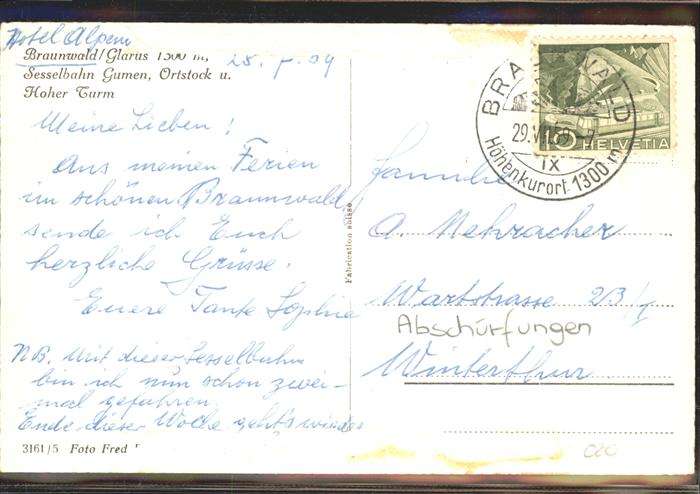 Hotel Alpina
Braunwald/Glarus 1300 m,
Sesselbahn Gumen, Ortstock u.
Hoher Turm
Meine Lieben!
Aus meinen Ferien
im schönen Braunwald
sende ich Euch
herzliche Grüsse.
Euere Tante Sophie
NB. Mit dieser Sesselbahn
bin ich nun schon zwei-
mal gefahren.
Ende dieser Woche geht's wieder
3161/5 Foto Fred
Fabrication suisse
BRAUNWALD
29.VII.59
IX
Höhenkurort 1300 m
5 HELVETIA
Familie
A. Mehracher
Wartstrasse 2B
Abschürfungen
Winterthur